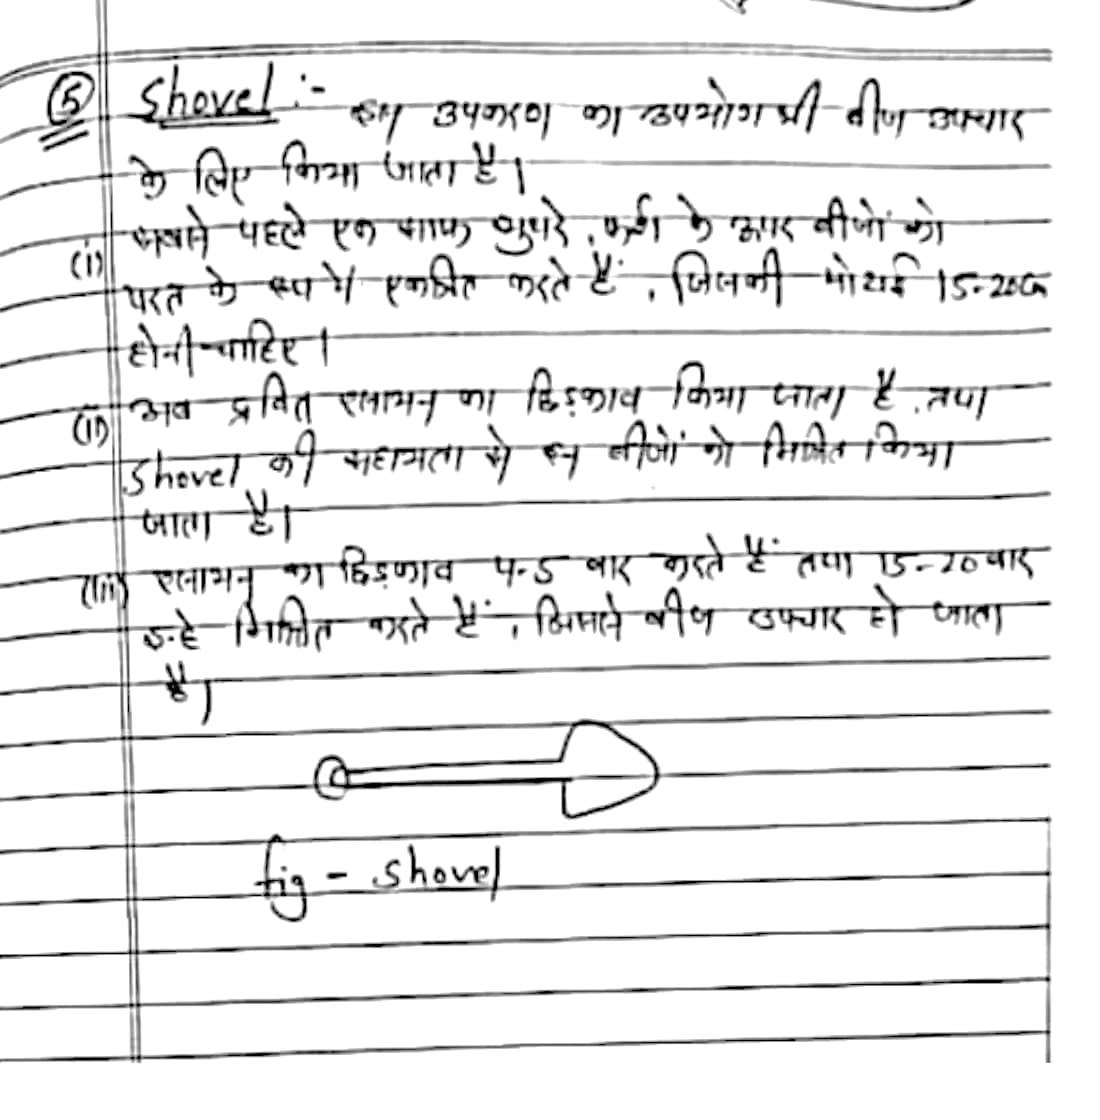 ⑤ Shovel :- इस उपकरण का उपयोग भी बीज उपचार
के लिए किया जाता है।
(i) सबसे पहले एक साफ सुथरे फर्श के ऊपर बीजों को
परत के रूप में एकत्रित करते हैं, जिसकी मोटाई 15-20Cm
होनी चाहिए।
(ii) अब द्रवित रसायन का छिड़काव किया जाता है, तथा
Shovel की सहायता से इन बीजों को मिश्रित किया
जाता है।
(iii) रसायन का छिड़काव 4-5 बार करते हैं तथा 15-20 बार
इन्हे मिश्रित करते हैं, जिससे बीज उपचार हो जाता
है।
fig - Shovel